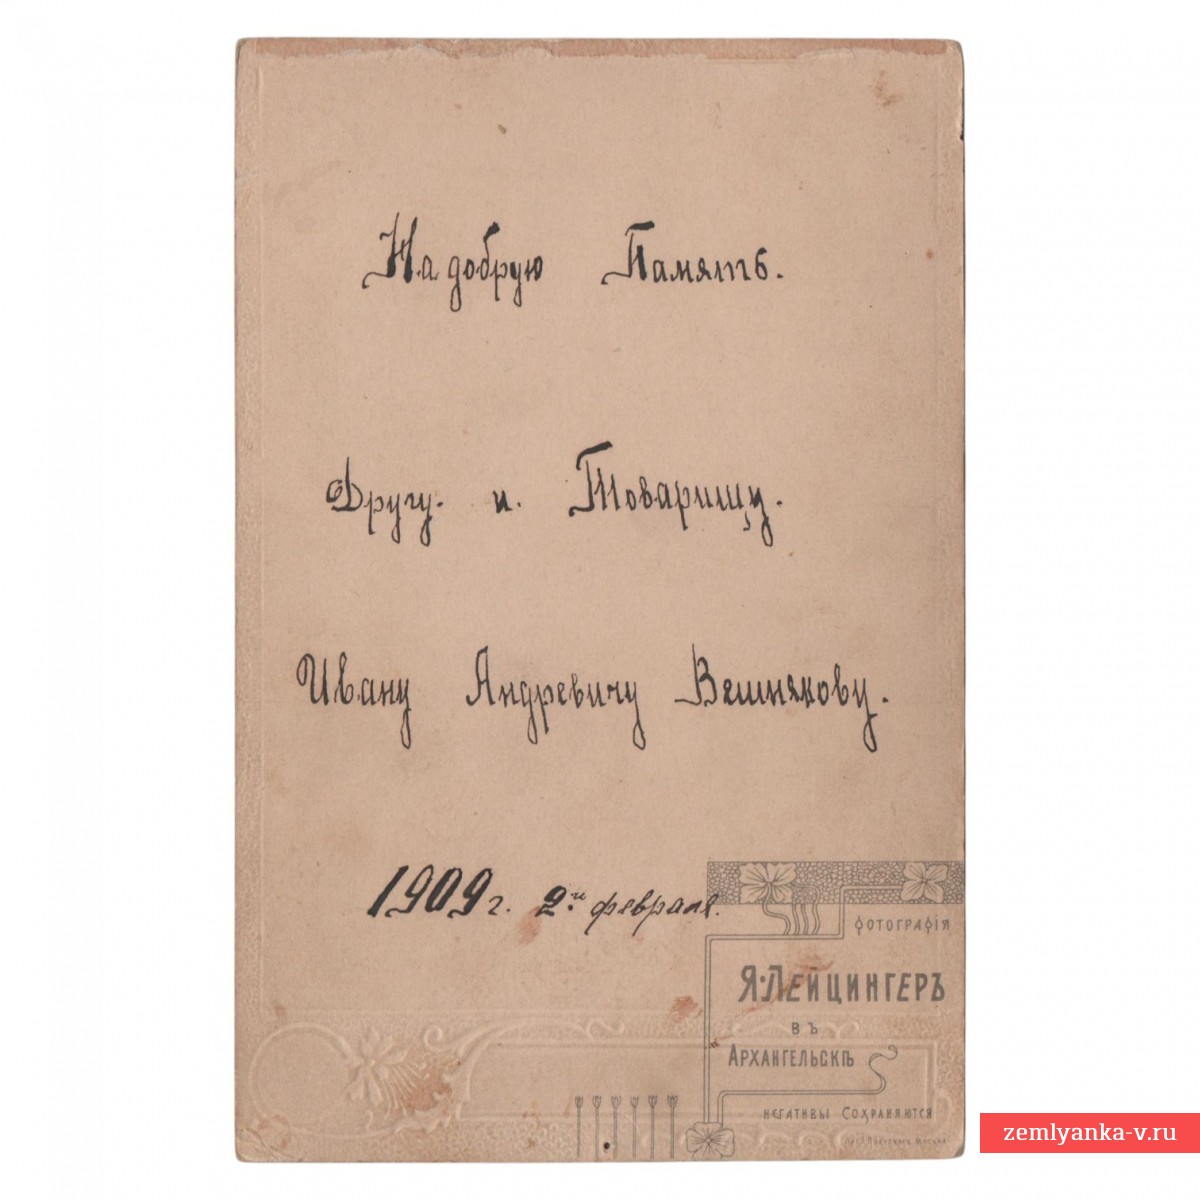 На добрую Память.
Другу. и. Товарищу.
Ивану Андревичу Вешнякову.
1909 г. 2.го февраля.
Фотографія
Я. Лейцингеръ
въ
Архангельскѣ
негативы сохраняются
Москва
zemlyanka-v.ru